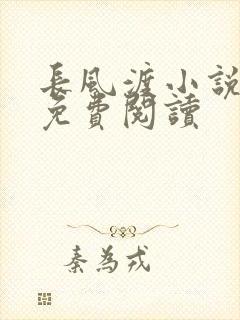 長風渡小說
免費閱讀
秦為戎